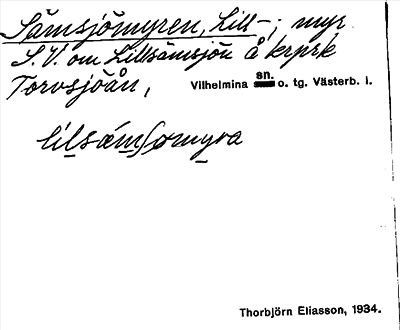 Sämsjömyren, Lill-; myr
S.V. om Lillsämsjön å krprk
Torvsjöån,
Vilhelmina sn. o. tg. Västerb. l.
lilsämsomyra
Thorbjörn Eliasson, 1934.